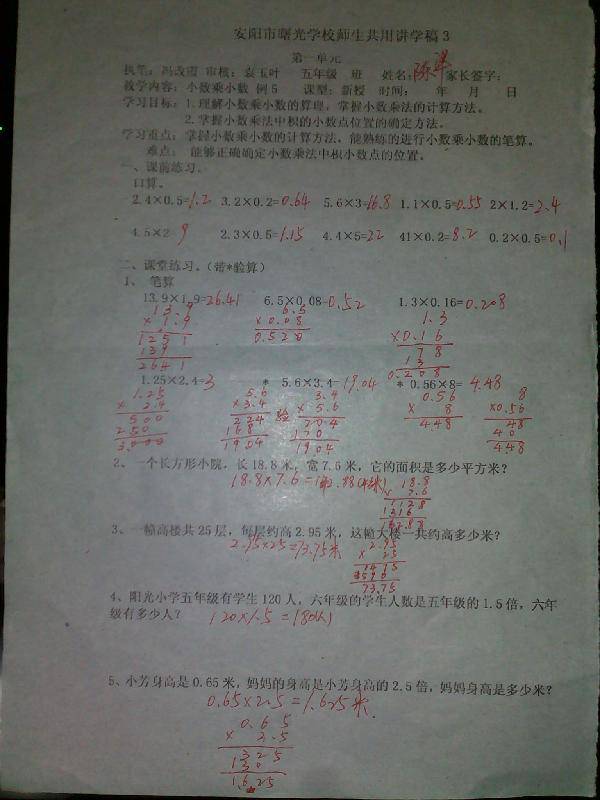 安阳市曙光学校师生共用讲学稿3
第一单元
执笔：冯改霞 审核：袁玉叶 五年级 班 姓名：陈 家长签字：
教学内容：小数乘小数 例5 课型：新授 时间： 年 月 日
学习目标：1.理解小数乘小数的算理，掌握小数乘法的计算方法。
2.掌握小数乘法中积的小数点位置的确定方法。
学习重点：掌握小数乘小数的计算方法，能熟练的进行小数乘小数的笔算。
难点：能够正确确定小数乘法中积小数点的位置。
一、课前练习。
口算。
2.4×0.5=1.2 3.2×0.2=0.64 5.6×3=16.8 1.1×0.5=0.55 2×1.2=2.4
4.5×2=9 2.3×0.5=1.15 4.4×5=22 41×0.2=8.2 0.2×0.5=0.1
二、课堂练习。（带*验算）
1、 笔算
13.9×1.9=26.41 6.5×0.08=0.52 1.3×0.16=0.208
13.9 6.5 1.3
×1.9 ×0.08 ×0.16
1251 0.520 78
139 13
2641 0.208
1.25×2.4=3 * 5.6×3.4=19.04 * 0.56×8=4.48
1.25 5.6 3.4 0.56 8
× 2.4 ×3.4 验 ×5.6 × 8 ×0.56
500 224 204 448 48
250 168 170 40
3.000 19.04 19.04 448
2、一个长方形小院，长18.8米，宽7.6米，它的面积是多少平方米？
18.8×7.6=142.88(米)
18.8
× 7.6
1128
1316
142.88
3、一幢高楼共25层，每层约高2.95米，这幢大楼一共约高多少米？
2.95×25=73.75米
2.95
× 25
1475
590
73.75
4、阳光小学五年级有学生120人，六年级的学生人数是五年级的1.5倍，六年
级有多少人？ 120×1.5=180(人)
5、小芳身高是0.65米，妈妈的身高是小芳身高的2.5倍，妈妈身高是多少米？
0.65×2.5=1.625米
0.65
× 2.5
325
130
1.625